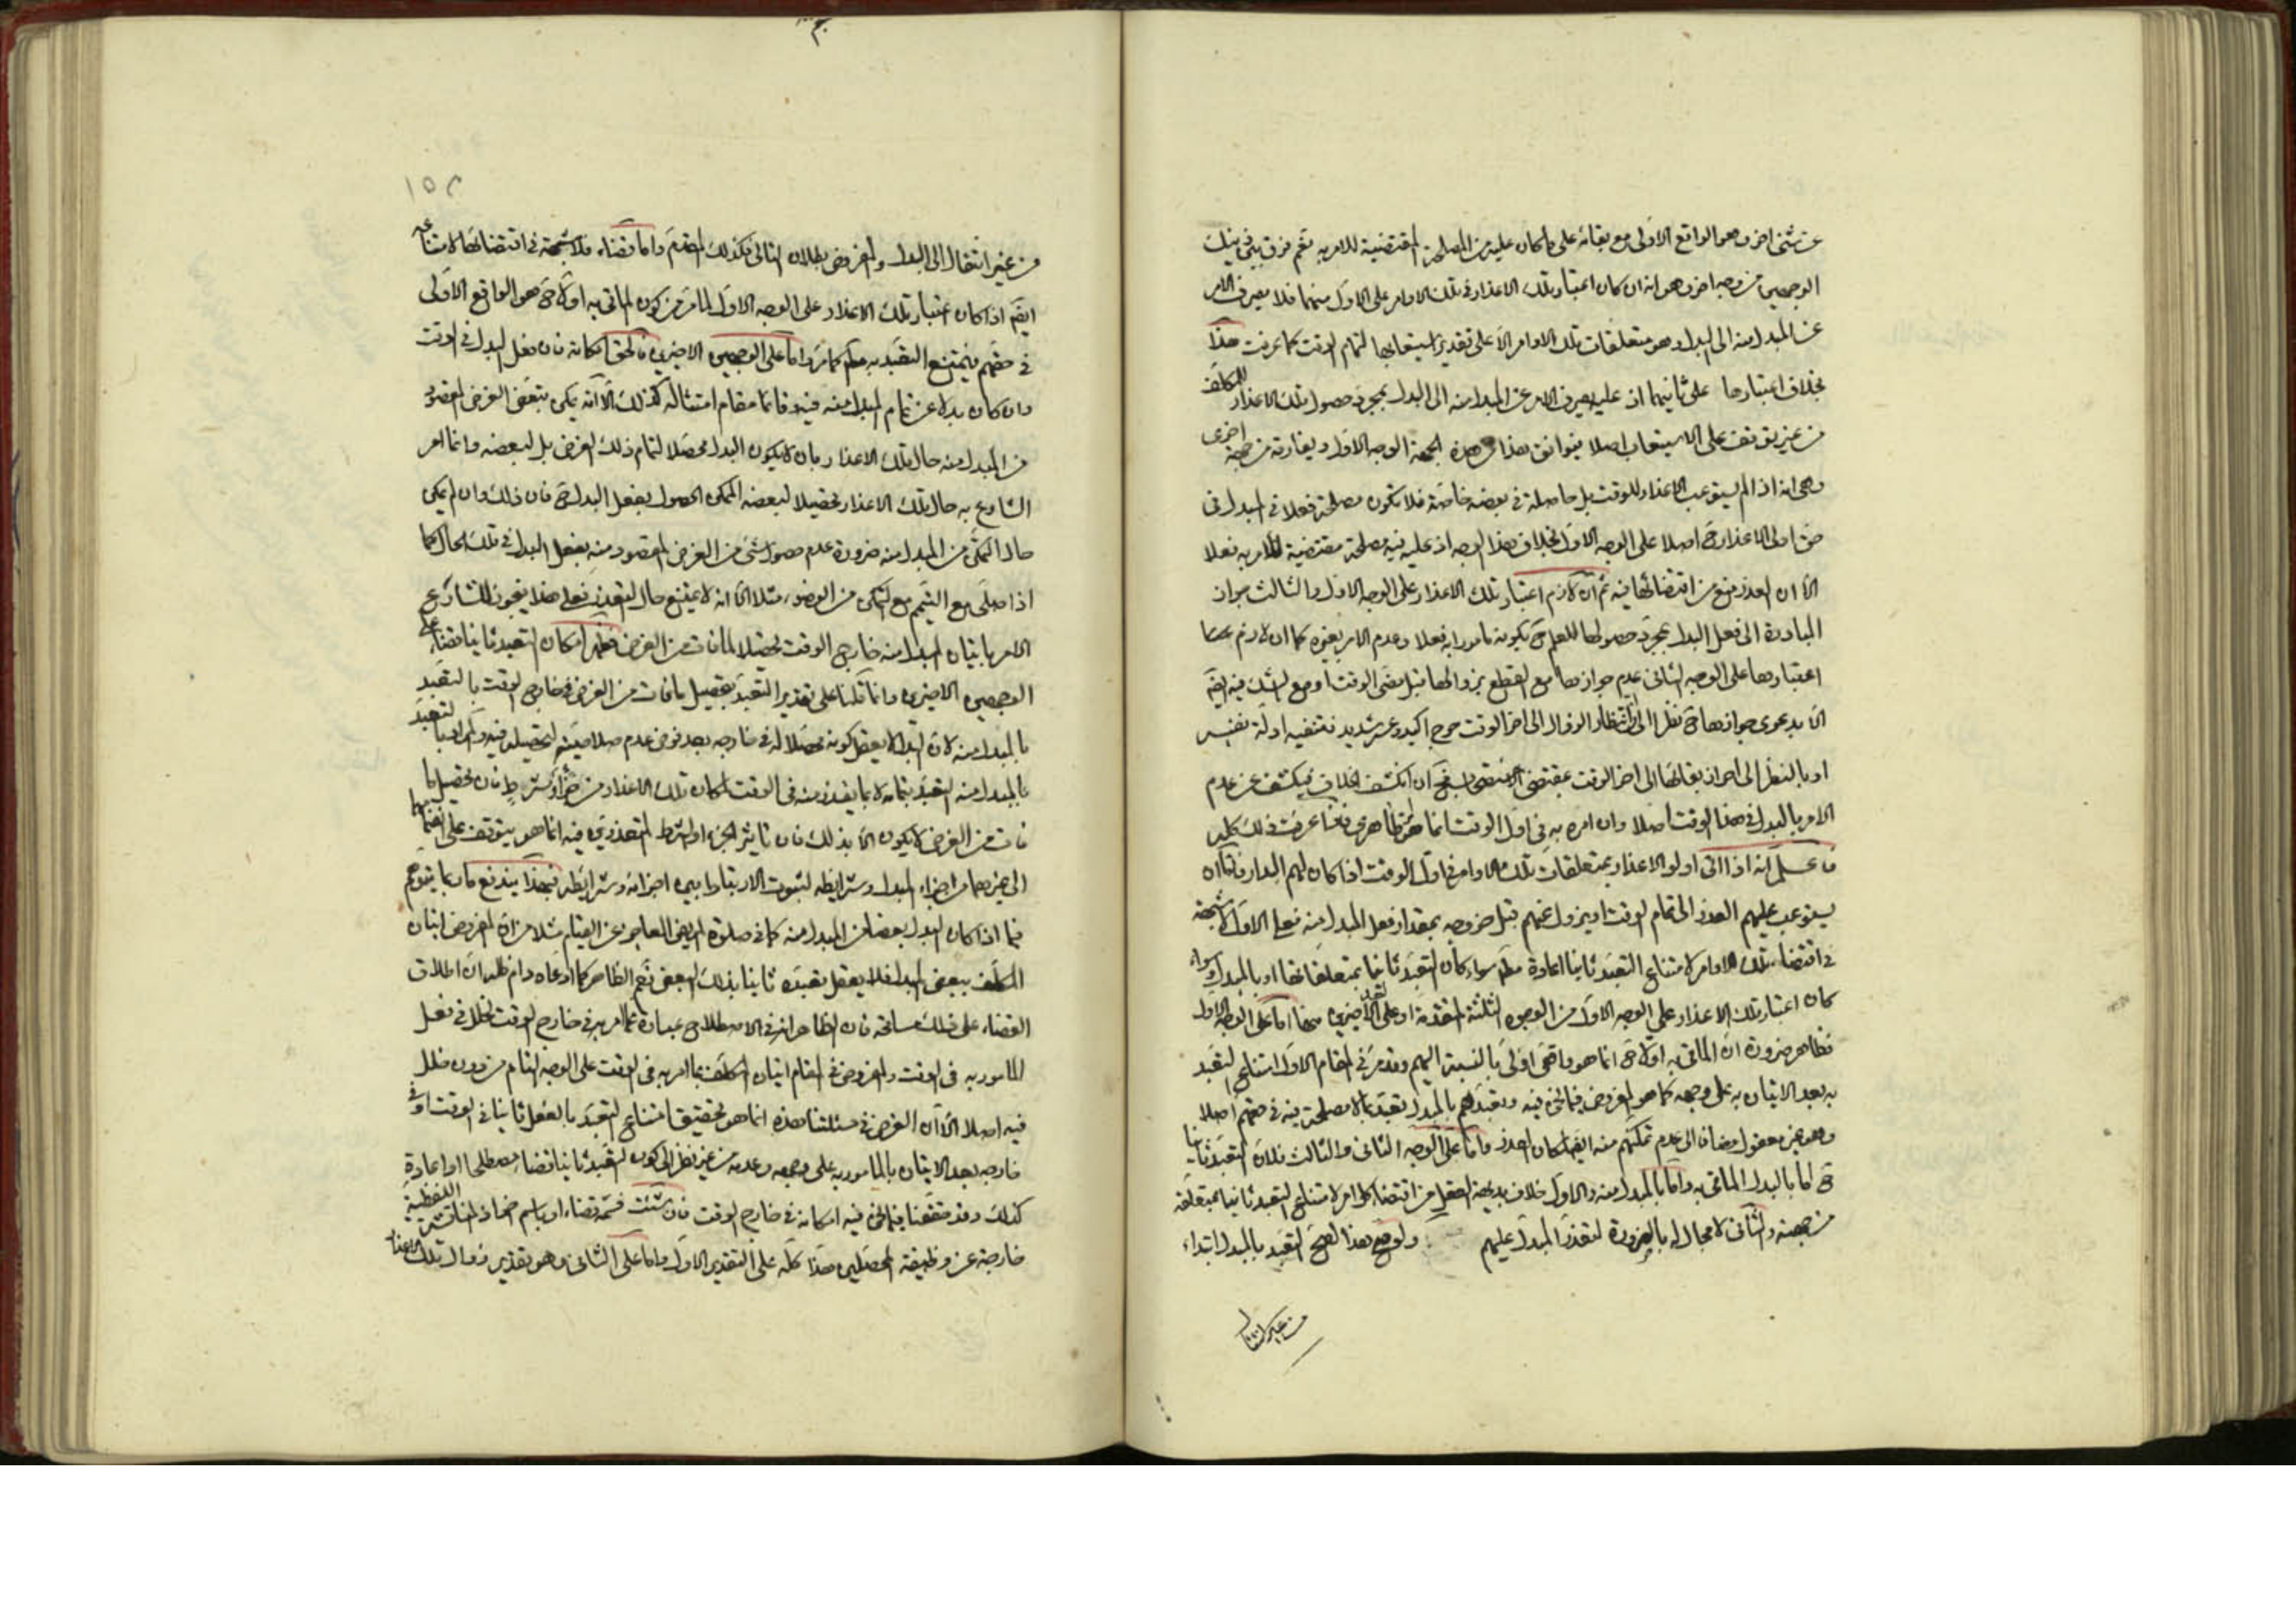 عن شئ اخر وهو الواقع الاولى مع بقائه على ما كان عليه من المصلحة المقتضية للامر به نعم فرق بين ذينك
الوجهين من وجه اخر وهو انه ان كان اعتبار تلك الاعذار فى تلك الاوامر على الاول منهما فلا يصرف الامر
عن المبدل منه الى البدل وهو متعلقات تلك الاوامر الا على تقدير استيعابها لتمام الوقت كما عرفت هذا
بخلاف اعتبارها على ثانيهما اذ عليه يصرف الامر عن المبدل منه الى البدل بمجرد حصول تلك الاعذار للمكلف
من غير توقف على الاستيعاب اصلا فيوافق هذا من هذه الجهة الوجه الاول ويفارقه من جهة اخرى
وهى انه اذا لم يستوعب الاعذار للوقت بل حاصلة فى بعضه خاصة فلا تكون مصلحة فعلا فى المبدل فى
حق اولى الاعذار ح اصلا على الوجه الاول بخلاف هذا الوجه اذ عليه فيه مصلحة مقتضية للامر به فعلا
الا ان العذر منع من اقتضائها فيه ثم ان لازم اعتبار تلك الاعذار على الوجه الاول والثالث جواز
المبادرة الى فعل البدل بمجرد حصولها للعلم ح بكونه مامورا به فعلا وعدم الامر بغيره كما ان لازم
اعتبارها على الوجه الثانى عدم جوازها مع القطع بزوالها قبل مضى الوقت او مع الشك فيه ايضا
الا بدعوى جوازها ح نظرا الى ان انتظار الزوال الى اخر الوقت حرج اكيد وعسر شديد فتنفيه ادلة نفيهما
او بالنظر الى احراز بقائها الى اخر الوقت بمقتضى الاستصحاب فح ان انكشف الخلاف فيكشف عن عدم
الامر بالبدل فى هذا الوقت اصلا وان امره به فى اول الوقت انما هو ظاهرى فاذا عرفت ذلك كله
فاعلم انه اذا اتى اولو الاعذار بمتعلقات تلك الاوامر فى اول الوقت اذا كان لهم البدار فاما ان
يستوعب عليهم العذر الى تمام الوقت او يزول عنهم قبل خروجه بمقدار فعل المبدل منه فعلى الاول لا شبهة
فى اقتضاء تلك الاوامر لامتناع التعبد ثانيا اعادة مطلقا سواء كان التعبد ثانيا بمتعلقاتها او بالمبدل وسواء
كان اعتبار تلك الاعذار على الوجه الاول من الوجوه الثلثة المتقدمة او على الاخيرين منها اما على الوجه الاول
فظاهر ضرورة ان الماتى به اولا ح انما هو واقعى اولى بالنسبة اليهم وقد مر فى المقام الاول امتناع التعبد
به بعد الاتيان به على وجهه كما هو المفروض فيما نحن فيه وتعبدهم بالمبدل تعبد بما لا مصلحة فيه فى حقهم اصلا
وهو غير معقول مضافا الى عدم تمكنهم منه ايضا لمكان العذر واما على الوجه الثانى والثالث فلان التعبد ثانيا
ح اما بالبدل الماتى به واما بالمبدل منه والاول خلاف بديهة العقل من اقتضاء كل امر لامتناع التعبد ثانيا بمتعلقه
من جهته والثانى لا مجال له بالضرورة لتعذر المبدل عليهم ولو صح هذا لصح التعبد بالمبدل ابتداء
من غير انتقال
١٥٢
من غير انتقال الى البدل والمفروض بطلان التالى فكذلك المقدم واما قضاء فلا شبهة فى اقتضائها لامتناعه
ايضا اذا كان اعتبار تلك الاعذار على الوجه الاول لما مر من كون الماتى به اولا ح هو الواقع الاولى
فى حقهم فيمتنع التعبد به مطلقا كما مر واما على الوجهين الاخيرين فالحق امكانه فان فعل البدل فى الوقت
وان كان بدلا عن تمام المبدل منه فيه وقائما مقام امتثاله كذلك الا انه يمكن تبعض الغرض المقصود
من المبدل منه حال تلك الاعذار بان لا يكون البدل محصلا لتمام ذلك الغرض بل لبعضه وانما امر
الشارع به حال تلك الاعذار تحصيلا لبعضه الممكن الحصول بفعل البدل ح فان ذلك وان لم يمكن
حال التمكن من المبدل منه ضرورة عدم حصول شئ من الغرض المقصود منه بفعل البدل فى تلك الحال كما
اذا صلى مع التيمم مع التمكن من الوضوء مثلا الا انه لا يمتنع حال التعذر فعلى هذا يجوز للشارع
الامر باتيان المبدل منه خارج الوقت تحصيلا لما فات من الغرض فظهر امكان التعبد ثانيا قضاء على
الوجهين الاخيرين وانما قلنا على تقدير التعبد بتحصيل ما فات من الغرض فى خارج الوقت بالتعبد
بالمبدل منه لان البدل لا يعقل كونه محصلا له فى خارجه بعد فرض عدم صلاحيته لتحصيله فيه وانما التعبد
بالمبدل منه التعبد بتمامه لا بما يتعذر منه فى الوقت لمكان تلك الاعذار من جزء او شرط فان تحصيل ما
فات من الغرض لا يكون الا بذلك فان تاثير الجزء او الشرط المتعذرين فيه انما هو يتوقف على انضمامها
الى غيرهما من اجزاء المبدل وشرايطه لثبوت الارتباط بين اجزائه وشرايطه فبهذا يندفع ما ربما يتوهم
فيما اذا كان البدل بعضا من المبدل منه كما فى صلوة المريض العاجز عن القيام مثلا من ان المفروض اتيان
المكلف ببعض المبدل فلا يعقل تعبده ثانيا بذلك البعض نعم الظاهر كما ادعاه دام ظله ان اطلاق
القضاء على ذلك مسامحة فان الظاهر انه فى الاصطلاح عبارة عما امر به فى خارج الوقت لخلل فى فعل
المامور به فى الوقت والمفروض فى المقام اتيان المكلف بما امر به فى الوقت على الوجه التام من دون خلل
فيه اصلا الا ان الغرض فى مسئلتنا هذه انما هو تحقيق امتناع التعبد بالفعل ثانيا فى الوقت او فى
خارجه بعد الاتيان بالمامور به على وجهه وعدمه من غير نظر الى كون التعبد ثانيا قضاء مصطلحا او اعادة
كذلك وقد حققنا فيما نحن فيه امكانه فى خارج الوقت فان شئت فسمه قضاء او باسم اخر اذ المناقشة اللفظية
خارجة عن وظيفة المحصلين هذا كله على التقدير الاول واما على الثانى وهو تقدير زوال تلك الاعذار